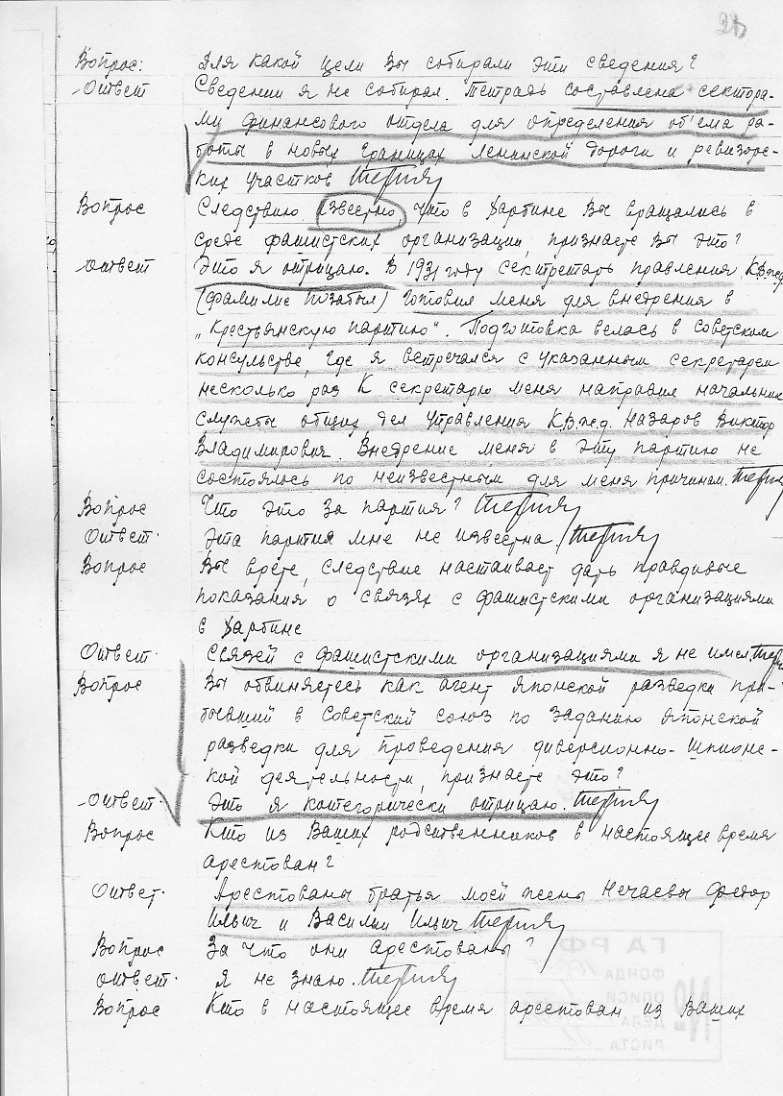 28
Вопрос: Для какой цели Вы собирали эти сведения?
Ответ Сведении я не собирал. Тетрадь составлена сектора-
ми финансового отдела для определения об'ема ра-
боты в новых границах Ленинской дороги и ревизорс-
ких участков
Вопрос Следствию известно что в Харбине Вы вращались в
среде фашистских организации, признаете Вы это?
Ответ Это я отрицаю. В 1931 году секретарь правления К.В.жд
(фамилие позабыл) готовил меня для внедрения в
„Крестьянскую партию“. Подготовка велась в Советском
консульстве, где я встречался с указанным секретарем
несколько раз К секретарю меня направил начальник
службы общих дел Управления К.В.жд. Назаров Виктор
Владимирович. Внедрение меня в эту партию не
состоялось по неизвестным для меня причинам.
Вопрос Что это за партия?
Ответ. Эта партия мне не известна.
Вопрос Вы врете, следствие настаивает дать правдивые
показания о связях с фашистскими организациями
в Харбине
Ответ. Связей с фашистскими организациями я не имел.
Вопрос Вы обвиняетесь как агент Японской разведки при-
бывший в Советский союз по заданию Японской
разведки для проведения диверсионно-шпионс-
кой деятельности, признаете это?
Ответ. Это я категорически отрицаю.
Вопрос Кто из Ваших родственников в настоящее время
арестован?
Ответ. Арестованы братья моей жены Нечаевы Федор
Ильич и Василий Ильич
Вопрос За что они арестованы?
Ответ. Я не знаю.
Вопрос Кто в настоящее время арестован из Ваших
ГАРФ
ФОНДА
ОПИСИ
ДЕЛА
ЛИСТА
№